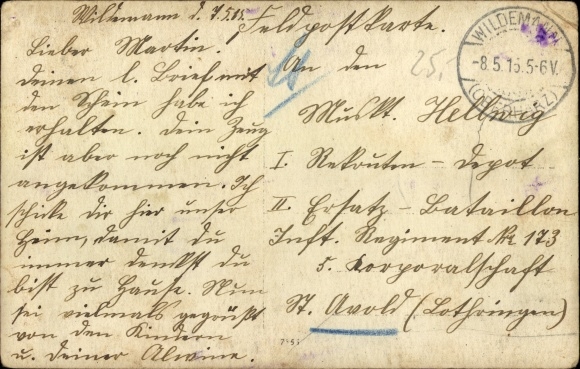 Wildemann d. 7.5.15.
Lieber Martin.
deinen l. Brief mit
den Schein habe ich
erhalten. Dein Zeug
ist aber noch nicht
angekommen. Ich
schicke dir hier unser
Heim, damit du
immer denkst du
bist zu Hause. Nun
sei vielmals gegrüßt
von den Kindern
u. deiner Alwine.
Feldpostkarte.
An den
25,-
Muskt. Hellwig
I. Rekruten-Depot
II Ersatz-Bataillon
Inft. Regiment № 173
5. Korporalschaft
St. Avold (Lothringen)
WILDEMANN
-8.5.15.5-6V.
(OBERHARZ)